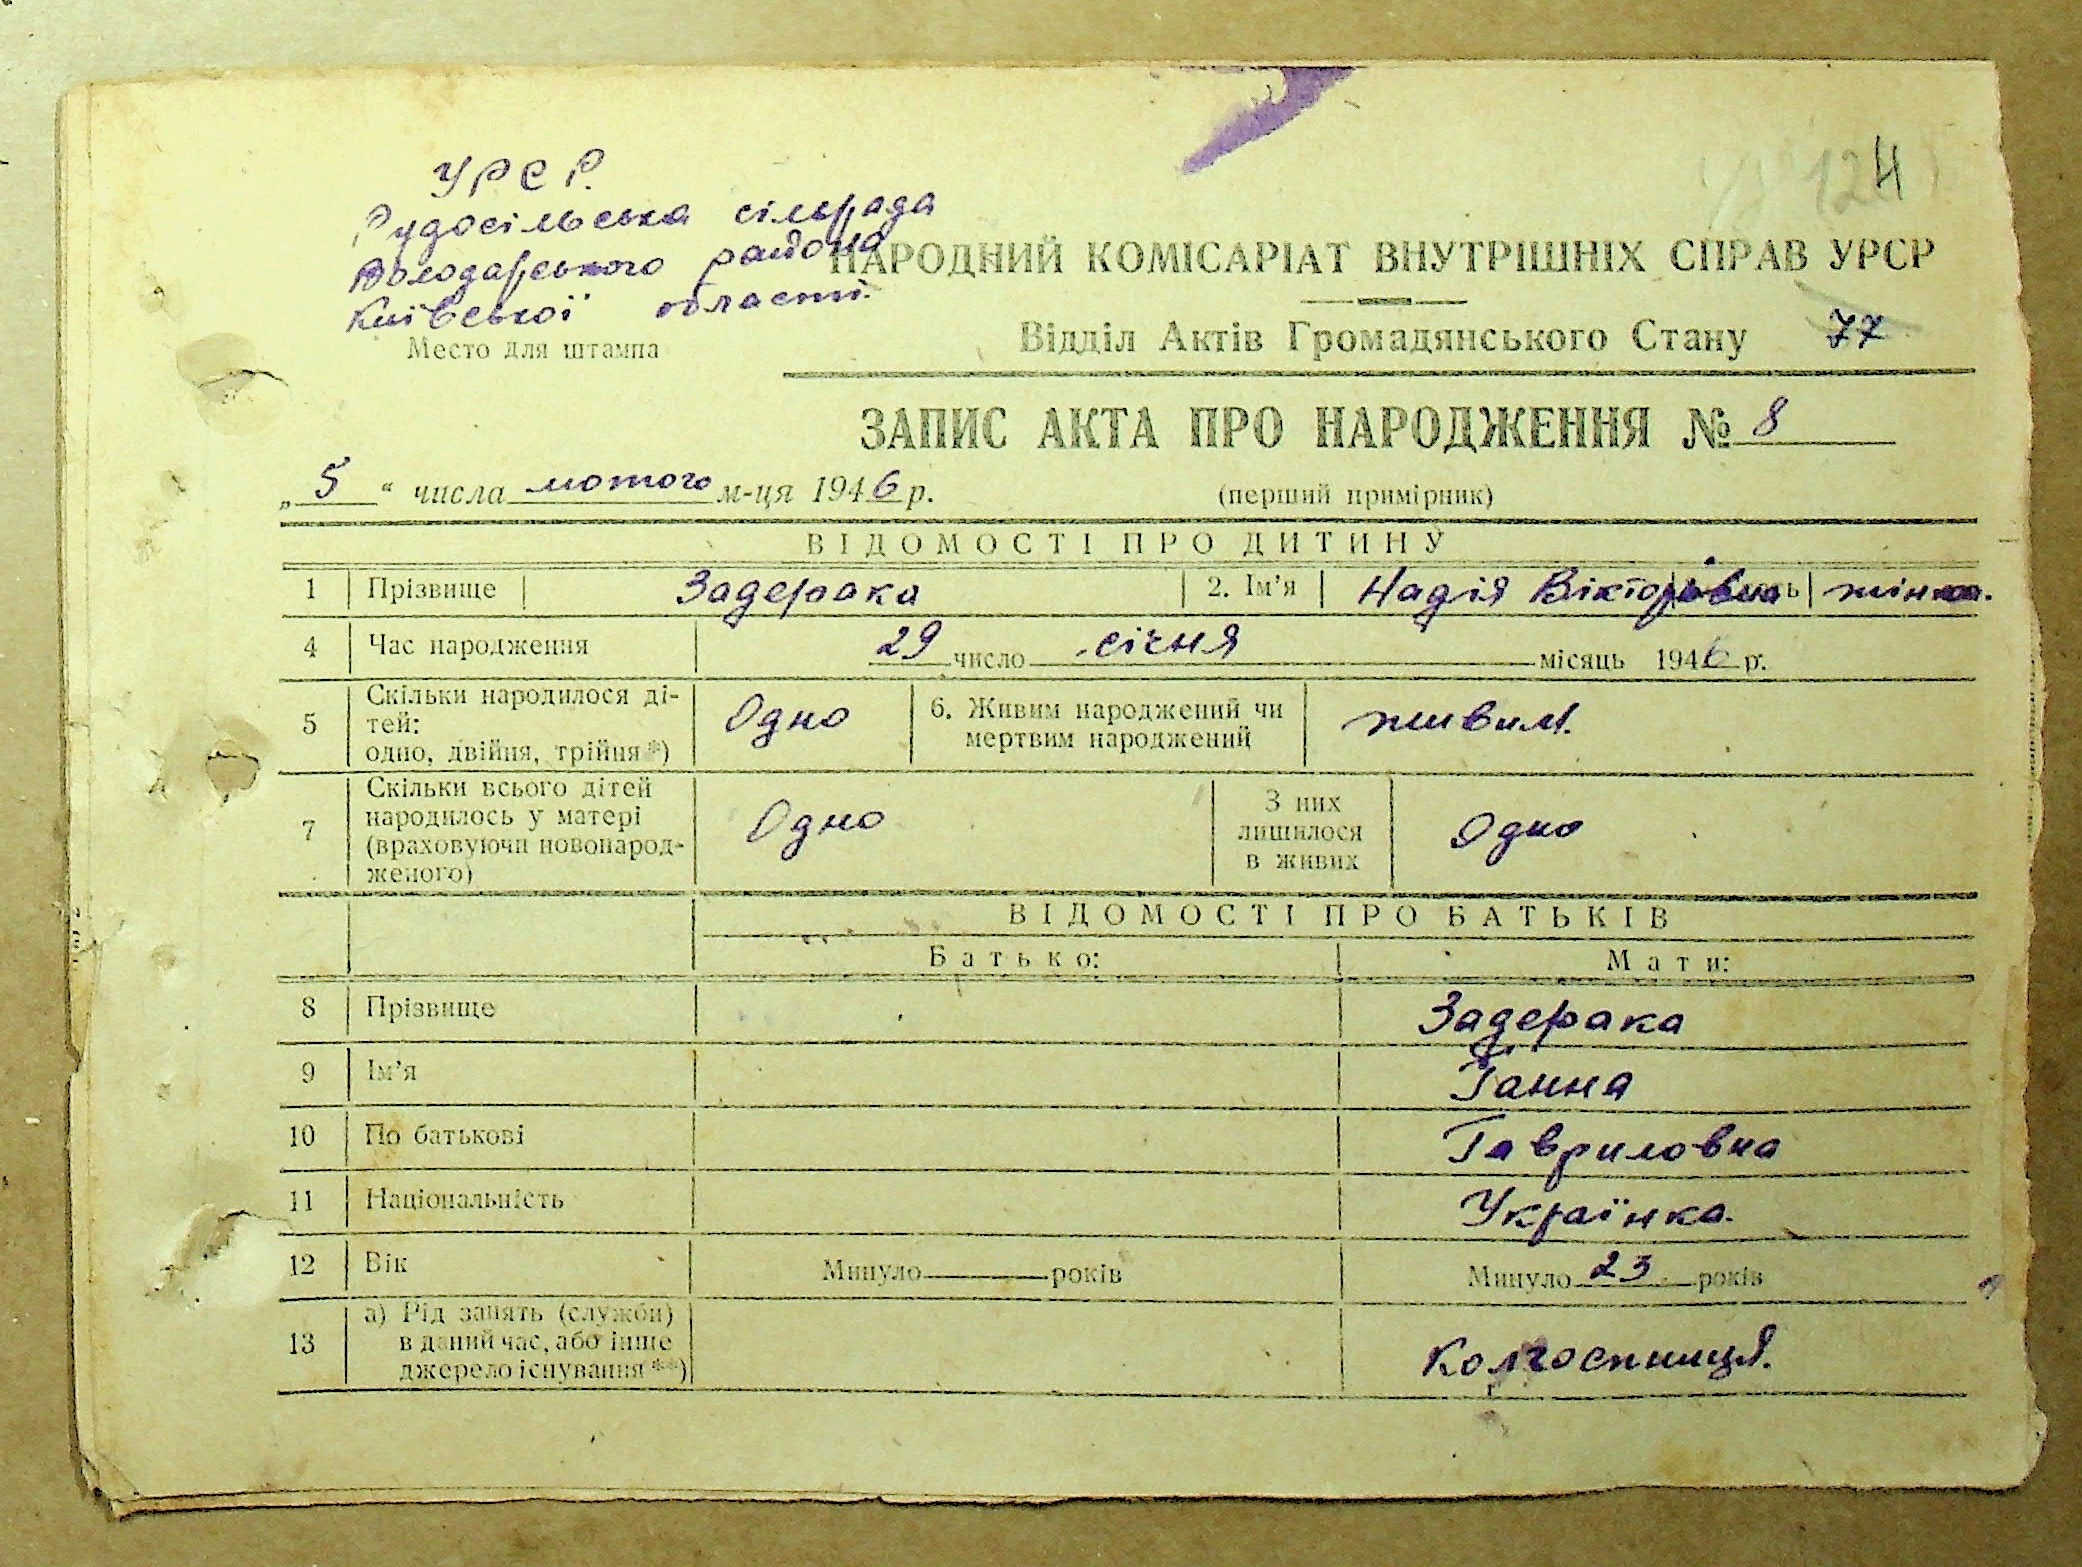 УРСР.
Рудосільська сільрада
Володарського района
Київської області.
Место для штампа
124
НАРОДНИЙ КОМІСАРІАТ ВНУТРІШНІХ СПРАВ УРСР
Відділ Актів Громадянського Стану 77
ЗАПИС АКТА ПРО НАРОДЖЕННЯ № 8
„ 5 “ числа лютого м-ця 1946 р. (перший примірник)
ВІДОМОСТІ ПРО ДИТИНУ
1 Прізвище Задерака 2. Ім'я Надія Вікторівна жінка.
4 Час народження 29 число січня місяць 1946 р.
5 Скільки народилося ді-
тей:
одно, двійня, трійня*) Одно 6. Живим народжений чи
мертвим народжений живим.
7 Скільки всього дітей
народилось у матері
(враховуючи новонарод-
женого) Одно З них
лишилося
в живих Одно
ВІДОМОСТІ ПРО БАТЬКІВ
Батько: Мати:
8 Прізвище Задерака
9 Ім'я Ганна
10 По батькові Гавриловна
11 Національність Українка.
12 Вік Минуло років Минуло 23 років
13 а) Рід занять (служби)
в даний час, або інше
джерело існування**) Колгоспниця.